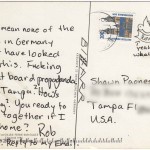 mean none of the
in Germany
have looked
this. Fucking
t board propaganda
Tampa? How's
? You ready to
together if I
home? Rob
Reply to my Email
Shawn
Tampa Fl
U.S.A.